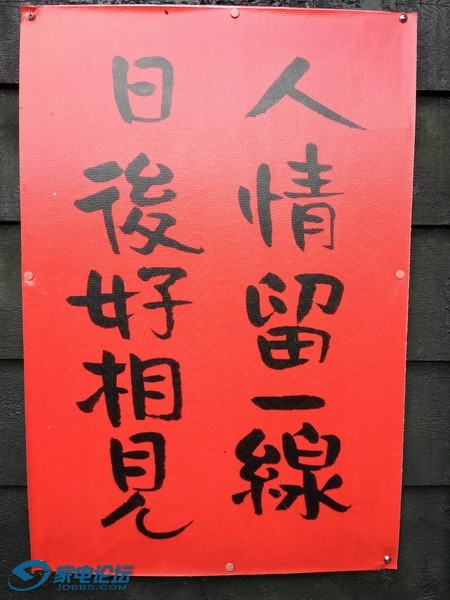 人情留一線
日後好相見
家电论坛
JDBBS.COM